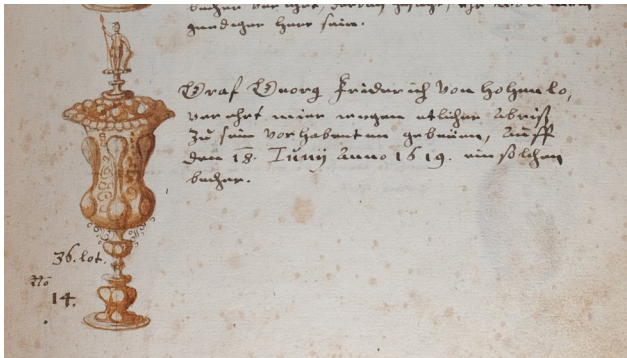 gnediger herr sein.
Graf Georg Friderich von Hohenlo,
verehrt mier wegen etlicher Abriß
zu sein vorhabenten gebeüen, Auff
den 18. Iunij Anno 1619. ein solchen
becher.
36. lot.
No
14.